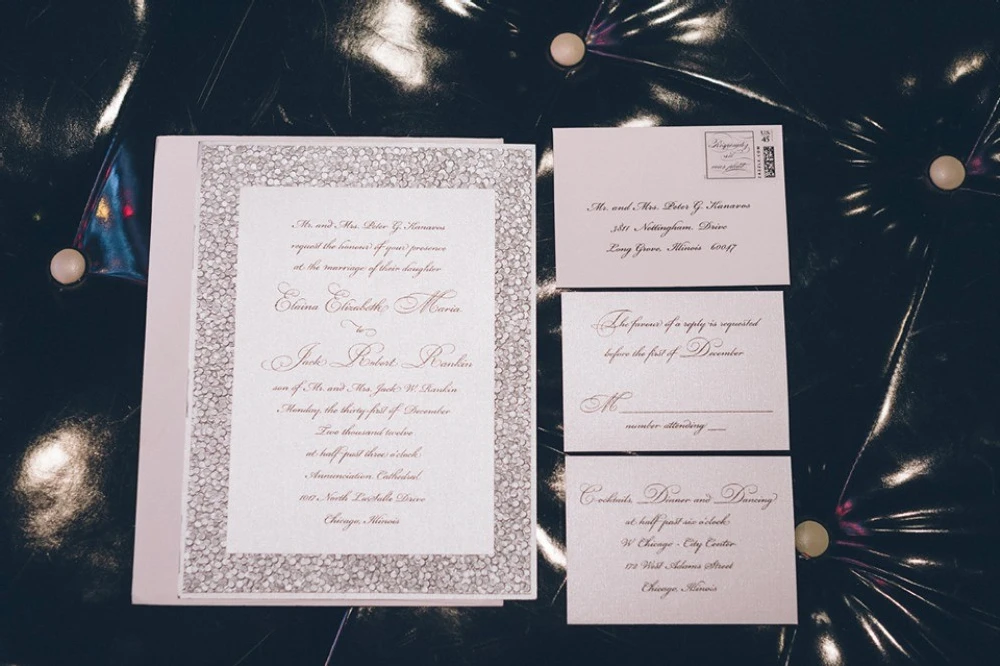 Mr. and Mrs. Peter G. Kanavos
request the honour of your presence
at the marriage of their daughter
Elaina Elizabeth Maria
to
Jack Robert Rankin
son of Mr. and Mrs. Jack W. Rankin
Monday, the thirty-first of December
Two thousand twelve
at half past three o'clock
Annunciation Cathedral
1017 North LaSalle Drive
Chicago, Illinois
45
Mr. and Mrs. Peter G. Kanavos
3811 Nottingham Drive
Long Grove, Illinois 60047
The favour of a reply is requested
before the first of December
M
number attending
Cocktails, Dinner and Dancing
at half past six o'clock
W Chicago - City Center
172 West Adams Street
Chicago, Illinois